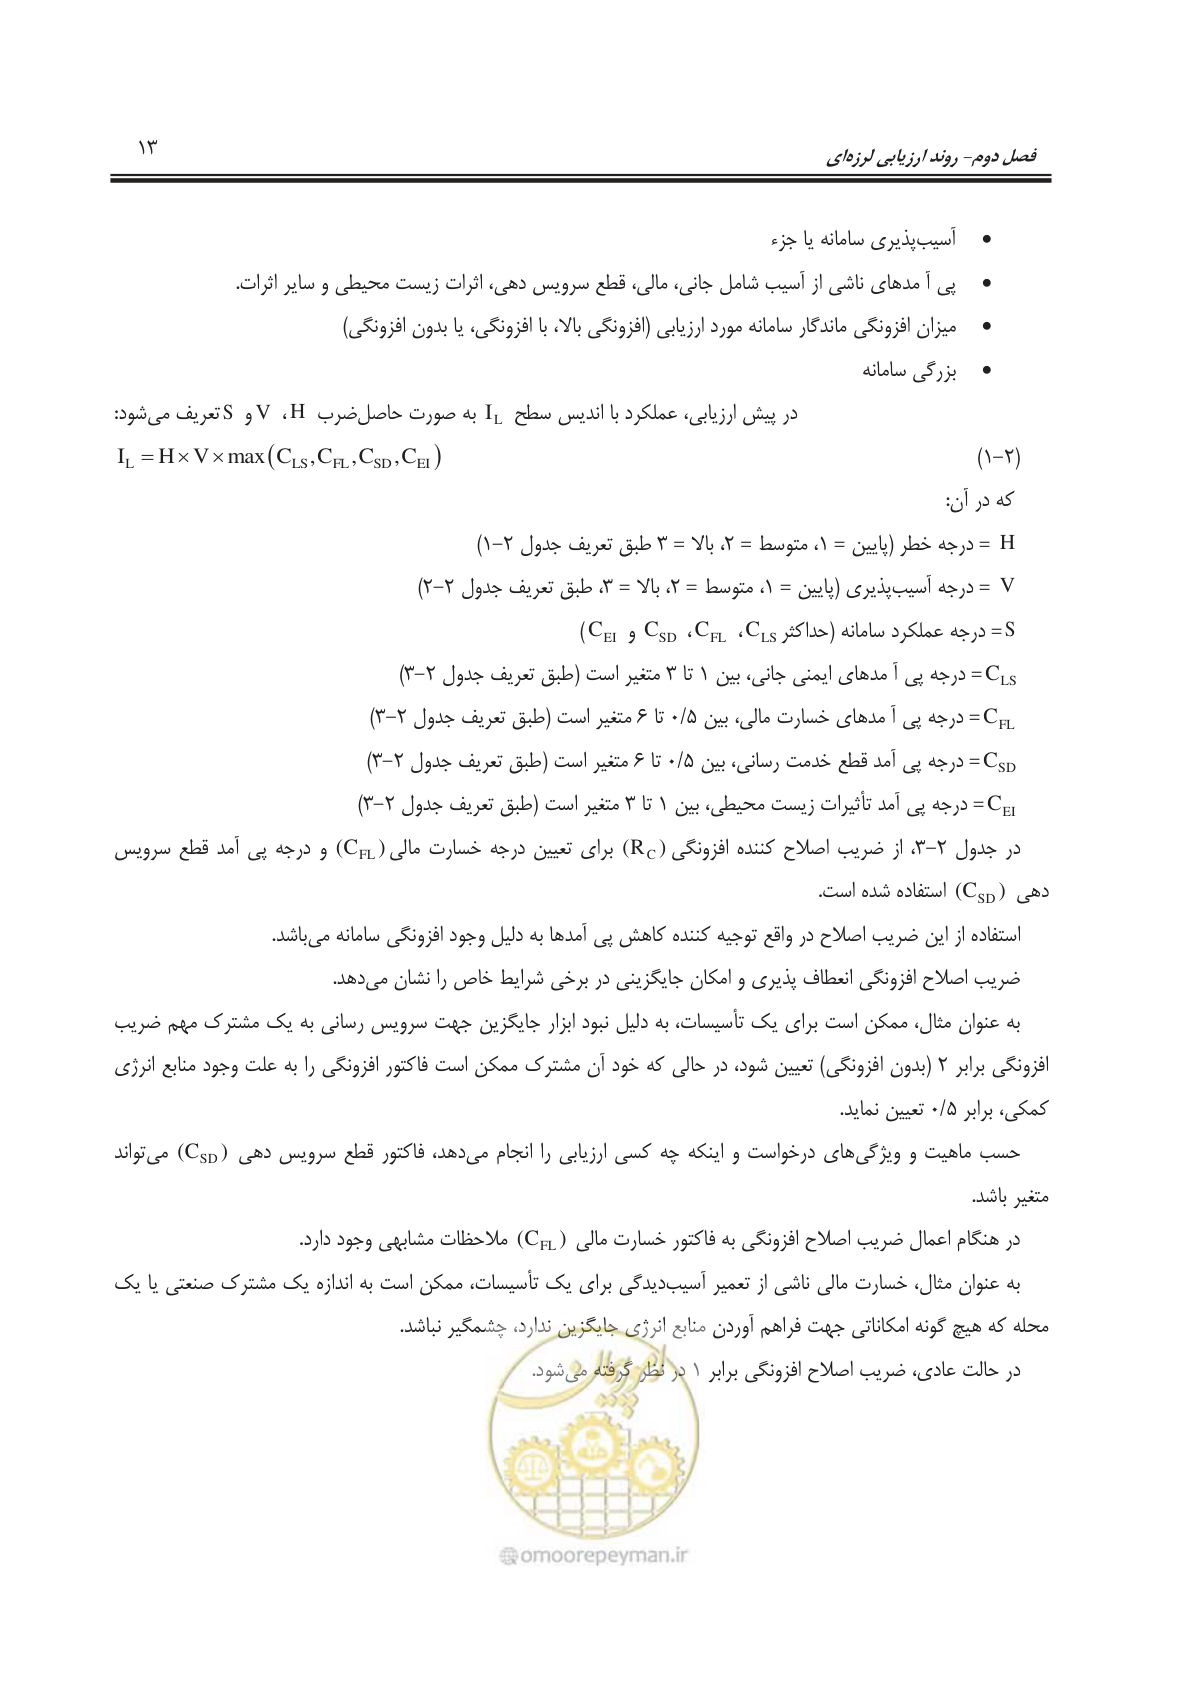 فصل دوم- روند ارزیابی لرزه‌ای ۱۳
• آسیب‌پذیری سامانه یا جزء
• پی آ مدهای ناشی از آسیب شامل جانی، مالی، قطع سرویس دهی، اثرات زیست محیطی و سایر اثرات.
• میزان افزونگی ماندگار سامانه مورد ارزیابی (افزونگی بالا، با افزونگی، یا بدون افزونگی)
• بزرگی سامانه
در پیش ارزیابی، عملکرد با اندیس سطح I_L به صورت حاصل‌ضرب H، V و S تعریف می‌شود:
(۲-۱) I_L = H × V × max(C_LS, C_FL, C_SD, C_EI)
که در آن:
H = درجه خطر (پایین = ۱، متوسط = ۲، بالا = ۳ طبق تعریف جدول ۲-۱)
V = درجه آسیب‌پذیری (پایین = ۱، متوسط = ۲، بالا = ۳، طبق تعریف جدول ۲-۲)
S = درجه عملکرد سامانه (حداکثر C_LS، C_FL، C_SD و C_EI)
C_LS = درجه پی آ مدهای ایمنی جانی، بین ۱ تا ۳ متغیر است (طبق تعریف جدول ۲-۳)
C_FL = درجه پی آ مدهای خسارت مالی، بین ۰/۵ تا ۶ متغیر است (طبق تعریف جدول ۲-۳)
C_SD = درجه پی آمد قطع خدمت رسانی، بین ۰/۵ تا ۶ متغیر است (طبق تعریف جدول ۲-۳)
C_EI = درجه پی آمد تأثیرات زیست محیطی، بین ۱ تا ۳ متغیر است (طبق تعریف جدول ۲-۳)
در جدول ۲-۳، از ضریب اصلاح کننده افزونگی (R_C) برای تعیین درجه خسارت مالی (C_FL) و درجه پی آمد قطع سرویس
دهی (C_SD) استفاده شده است.
استفاده از این ضریب اصلاح در واقع توجیه کننده کاهش پی آمدها به دلیل وجود افزونگی سامانه می‌باشد.
ضریب اصلاح افزونگی انعطاف پذیری و امکان جایگزینی در برخی شرایط خاص را نشان می‌دهد.
به عنوان مثال، ممکن است برای یک تأسیسات، به دلیل نبود ابزار جایگزین جهت سرویس رسانی به یک مشترک مهم ضریب
افزونگی برابر ۲ (بدون افزونگی) تعیین شود، در حالی که خود آن مشترک ممکن است فاکتور افزونگی را به علت وجود منابع انرژی
کمکی، برابر ۰/۵ تعیین نماید.
حسب ماهیت و ویژگی‌های درخواست و اینکه چه کسی ارزیابی را انجام می‌دهد، فاکتور قطع سرویس دهی (C_SD) می‌تواند
متغیر باشد.
در هنگام اعمال ضریب اصلاح افزونگی به فاکتور خسارت مالی (C_FL) ملاحظات مشابهی وجود دارد.
به عنوان مثال، خسارت مالی ناشی از تعمیر آسیب‌دیدگی برای یک تأسیسات، ممکن است به اندازه یک مشترک صنعتی یا یک
محله که هیچ گونه امکاناتی جهت فراهم آوردن منابع انرژی جایگزین ندارد، چشمگیر نباشد.
در حالت عادی، ضریب اصلاح افزونگی برابر ۱ در نظر گرفته می‌شود.
امور پیمان
@omoorepeyman.ir